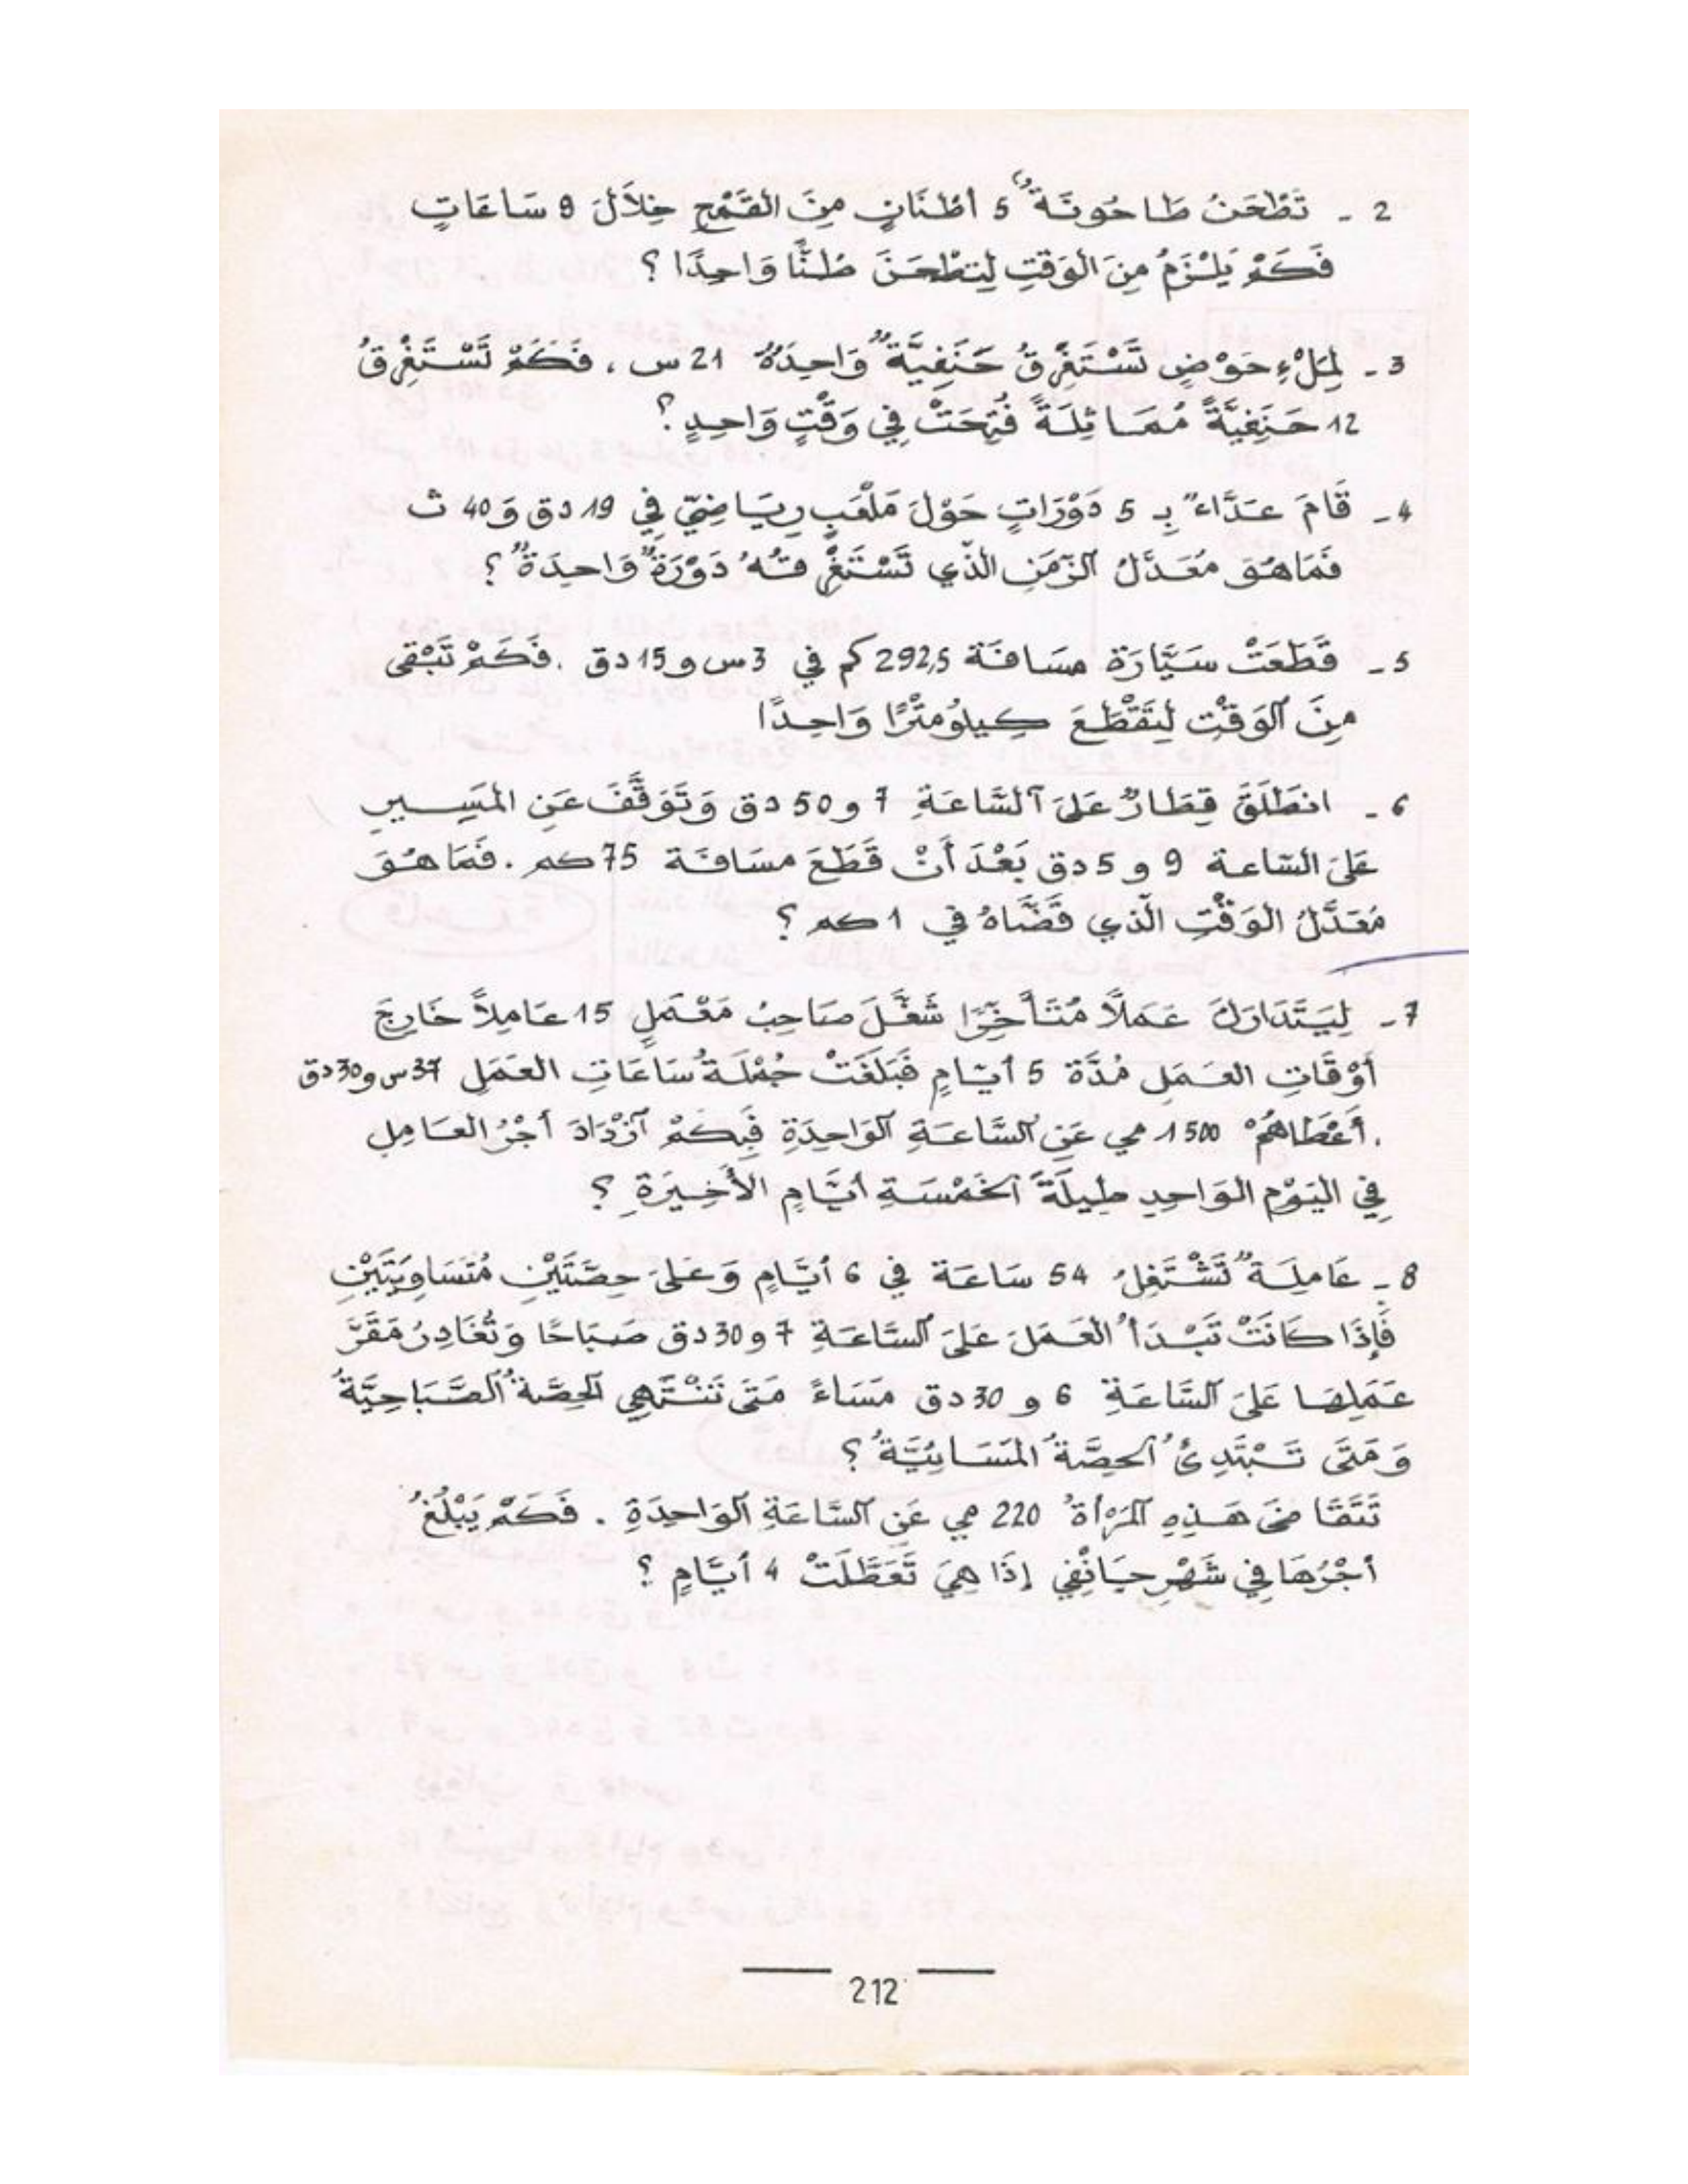 2 - تَطْحَنُ طَاحُونَةٌ 5 أطْنَانٍ مِنَ القَمْحِ خِلَالَ 9 سَاعَاتٍ
فَكَمْ يَلْزَمُ مِنَ الوَقْتِ لِتَطْحَنَ طُنًّا وَاحِدًا ؟
3 - لِمَلْءِ حَوْضٍ تَسْتَغْرِقُ حَنَفِيَّةٌ وَاحِدَةٌ 21 س ، فَكَمْ تَسْتَغْرِقُ
12 حَنَفِيَّةً مُمَاثِلَةً فُتِحَتْ فِي وَقْتٍ وَاحِدٍ ؟
4 - قَامَ عَدَّاءٌ بِـ 5 دَوْرَاتٍ حَوْلَ مَلْعَبٍ رِيَاضِيّ فِي 19 دق وَ 40 ث
فَمَا هُوَ مُعَدَّلُ الزّمَنِ الذّي تَسْتَغْرِقُهُ دَوْرَةٌ وَاحِدَةٌ ؟
5 - قَطَعَتْ سَيَّارَة مسَافَة 292,5 كم في 3 س و 15 دق . فَكَمْ تَبْقى
مِنَ الوَقْت لِتَقْطَعَ كِيلُومتْرًا وَاحِدًا
6 - انطَلَقَ قِطَارٌ عَلَى السَّاعَةِ 7 و 50 دق وَتَوَقَّفَ عَنِ المَسِيرِ
عَلَى السّاعة 9 و 5 دق بَعْدَ أَنْ قَطَعَ مسَافَة 75 كم . فَمَا هُوَ
مُعَدَّلُ الوَقْتِ الّذي قَضَّاهُ في 1 كم ؟
7 - لِيَتَدَارَكَ عَمَلًا مُتَأَخِّرًا شَغَّلَ صَاحِبُ مَعْمَلٍ 15 عَامِلاً خَارِجَ
أَوْقَاتِ العَمَلِ مُدَّة 5 أيّامٍ فَبَلَغَتْ جُمْلَةُ سَاعَاتِ العَمَلِ 37 س و 30 دق
. أَعْطَاهُمْ 1500 مي عَنِ السَّاعَةِ الوَاحِدَةِ فَبِكَمْ ازْدَادَ أَجْرُ العَامِلِ
فِي اليَوْمِ الوَاحِدِ طِيلَةَ الخَمْسَةِ أيَّامٍ الأَخِيرَةِ ؟
8 - عَامِلَةٌ تَشْتَغِلُ 54 سَاعَة في 6 أيَّامٍ وَعَلَى حِصَّتَيْنِ مُتَسَاوِيَتَيْنِ
فَإِذَا كَانَتْ تَبْدَأُ العَمَلَ عَلَى السَّاعَةِ 7 و 30 دق صَبَاحًا وَتُغَادِرُ مَقَرَّ
عَمَلِهَا عَلَى السَّاعَةِ 6 و 30 دق مَسَاءً مَتَى تَنْتَهِي الحِصَّةُ الصَّبَاحِيَّةُ
وَمَتَى تَبْتَدِئُ الحِصَّةُ المَسَائِيَّةُ ؟
تَتَقَاضَى هَذِهِ المَرْأةُ 220 مي عَنِ السَّاعَةِ الوَاحِدَةِ . فَكَمْ يَبْلُغُ
أجْرُهَا فِي شَهْرِ جَانْفِي إِذَا هِيَ تَعَطَّلَتْ 4 أيَّامٍ ؟
212